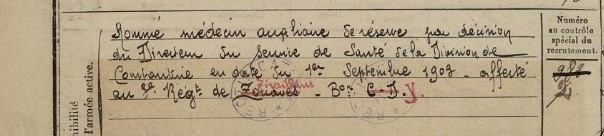 Numéro
au contrôle
spécial du
recrutement.
Nommé médecin auxiliaire de réserve par décision
du Directeur du Service de Santé de la Division de
Constantine en date du 1er Septembre 1903 - affecté
au 3e Régt. de Zouaves - Bon C. D. y.
Tirailleurs
l'armée active.
ibilité